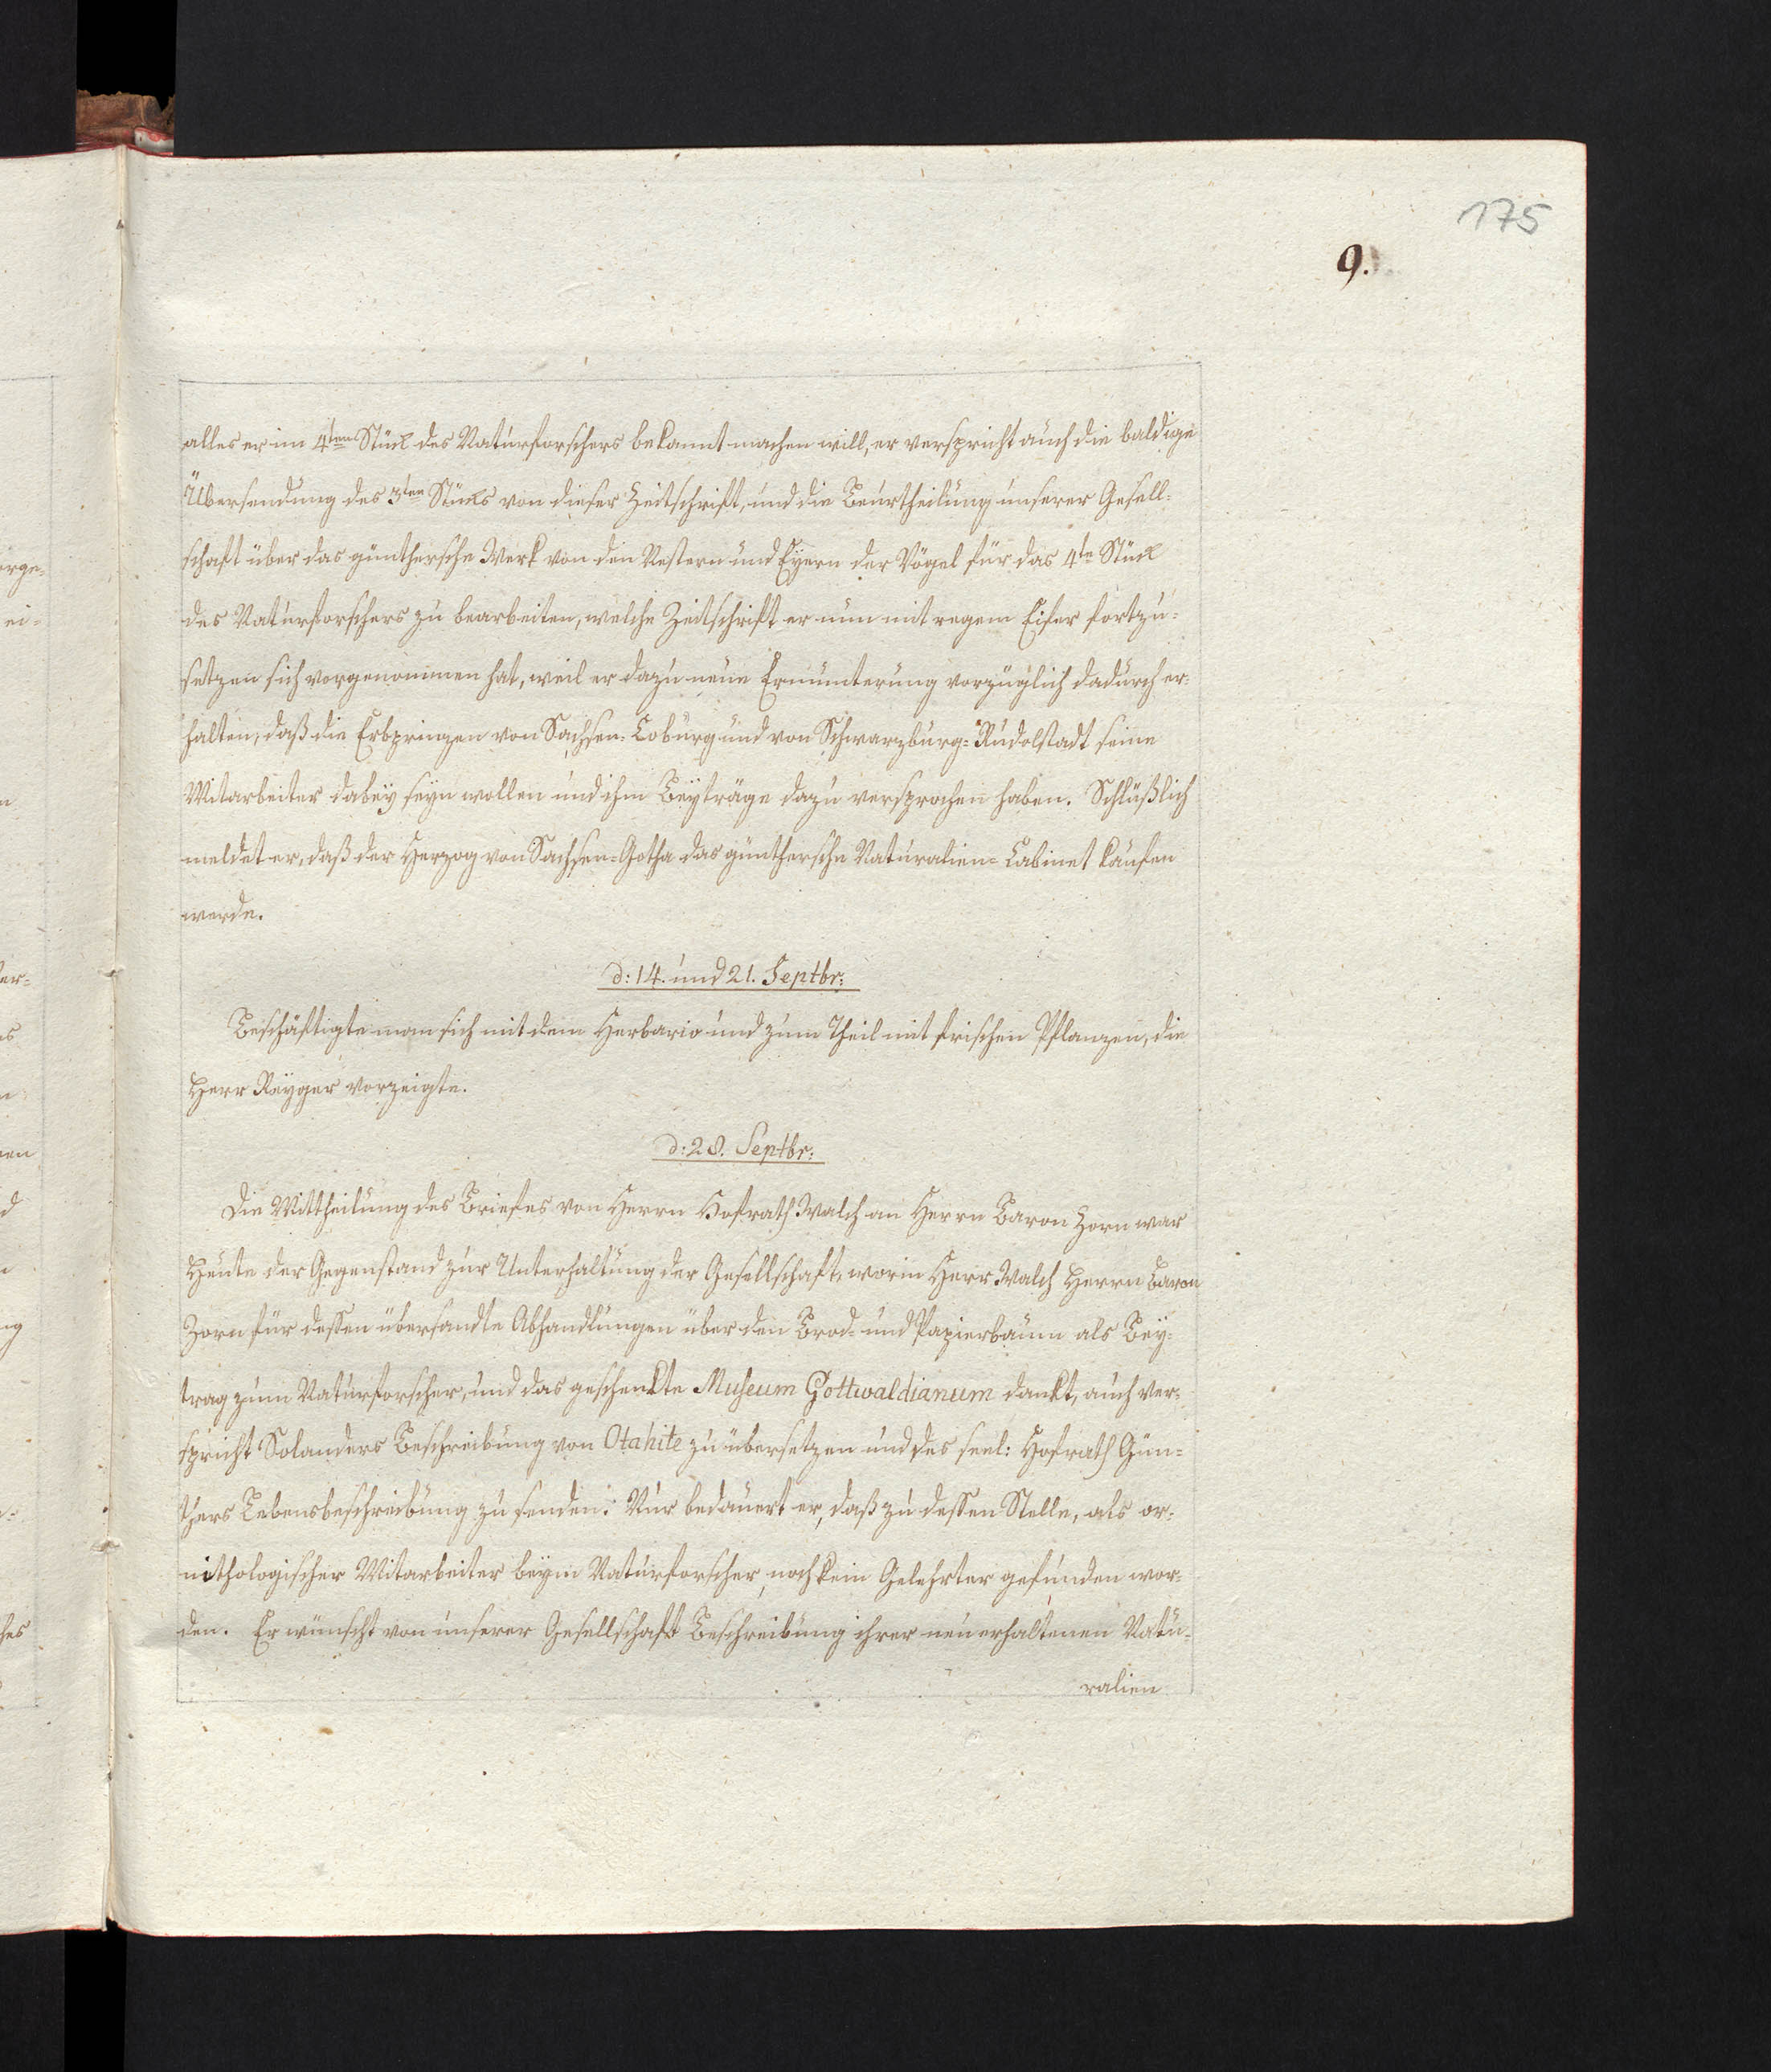 175
9.
alles er im 4ten Stück des Naturforschers bekannt machen will, er verspricht auch die baldige
Übersendung des 3ten Stücks von dieser Zeitschrift, und die Beurtheilung unserer Gesell-
schaft über das günthersche Werk von den Nestern und Eyern der Vögel für das 4te Stück
des Naturforschers zu bearbeiten, welche Zeitschrift er nun mit regem Eifer fortzu-
setzen sich vorgenommen hat, weil er dazu neue Ermunterung vorzüglich dadurch er-
halten, daß die Erbprinzen von Sachsen-Coburg und von Schwarzburg-Rudolstadt seine
Mitarbeiter dabey seyn wollen und ihm Beyträge dazu versprochen haben. Schlüßlich
meldet er, daß der Herzog von Sachsen-Gotha das günthersche Naturalien-Cabinet kaufen
werde.
d: 14. und 21. Septbr:
Beschäftigte man sich mit dem Herbario und zum Theil mit frischen Pflanzen, die
Herr Reyger vorzeigte.
d: 28. Septbr:
Die Mittheilung des Briefes von Herrn Hofrath Walch an Herrn Baron Zorn war
Heute der Gegenstand zur Unterhaltung der Gesellschaft, worin Herr Walch Herrn Baron
Zorn für dessen übersandte Abhandlungen über den Brod- und Papierbaum als Bey-
trag zum Naturforscher, und das geschenkte Museum Gottwaldianum dankt, auch ver-
spricht Solanders Beschreibung von Otahite zu übersetzen und des seel: Hofrath Gün-
thers Lebensbeschreibung zu senden. Nur bedauert er, daß zu dessen Stelle, als or-
nithologischer Mitarbeiter beym Naturforscher, noch kein Gelehrter gefunden wor-
den. Er wünscht von unserer Gesellschaft Beschreibung ihrer neu erhaltenen Natu-
ralien